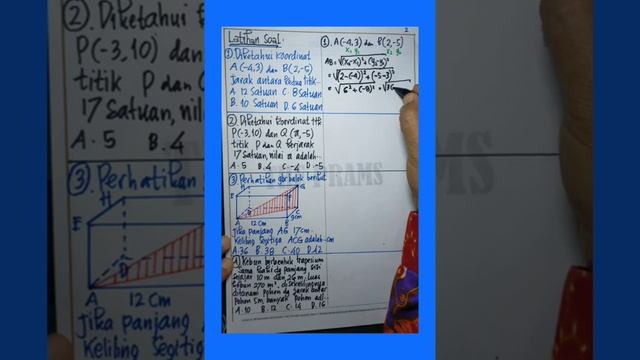 Latihan Soal:
① Diketahui Koordinat
A(-4,3) dan B(2,-5)
Jarak antara kedua titik...
A. 12 Satuan C. 8 Satuan
B. 10 Satuan D. 6 Satuan
② Diketahui koordinat ttk
P(-3,10) dan Q(a,-5)
titik P dan Q berjarak
17 Satuan, nilai a adalah...
A. 5 B. 4 C. -4 D. -5
③ Perhatikan gbr balok berikut
H G
E
D C
A 12 cm B 9cm
Jika panjang AG 17cm
Keliling segitiga ACG adalah...cm
A. 36 B. 38 C. 40 D. 42
④ Kebun berbentuk trapesium
Sama kaki dg panjang sisi
sejajar 10 m dan 26 m, luas
kebun 270 m², di sekelilingnya
ditanami pohon dg jarak antar
pohon 3m, banyak pohon adl...
A. 10 B. 12 C. 14 D. 16
2
①. A(-4,3) dan B(2,-5)
x₁ y₁ x₂ y₂
AB = √(x₂-x₁)²+(y₂-y₁)²
= √(2-(-4))²+(-5-3)²
= √6²+(-8)² = √36
PRAMS
②. Diketahui
P(-3,10)
titik P dan Q
17 Satuan, nil
A. 5 B. 4
③. Perhatikan
H
E
D
A 12 cm
Jika panjang
Keliling segitiga
koordinat ttk
dan Q (a,-5)
berjarak
C. -4 D. -5
gbr balok berikut